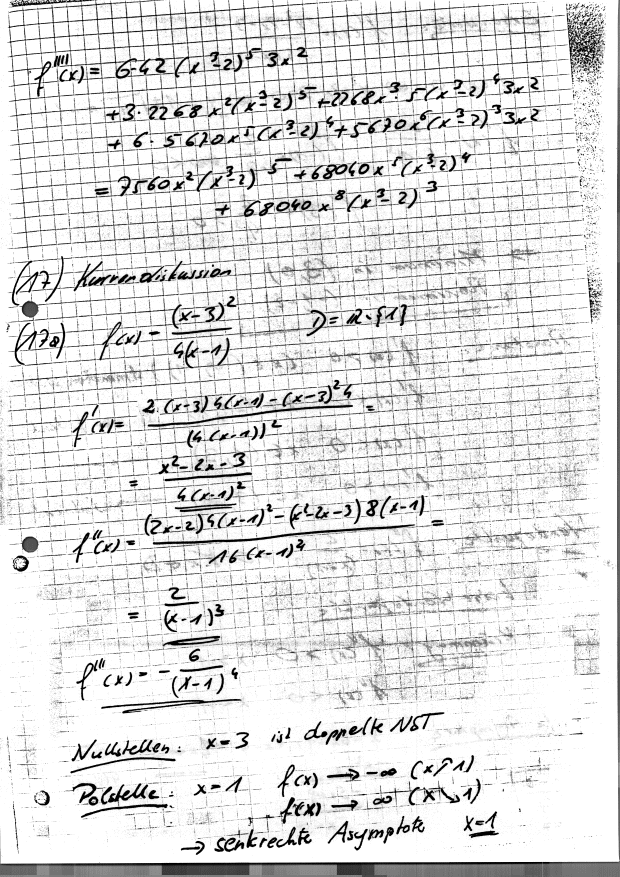 f''''(x) = 6·42 (x³-2)⁵ 3x²
+3·2268 x²(x³-2)⁵ +2268x³·5(x³-2)⁴ 3x²
+ 6·5670x⁵(x³-2)⁴ +5670x⁶(x³-2)³ 3x²
= 7560x²(x³-2)⁵ +68040x⁵(x³-2)⁴
+ 68040x⁸(x³-2)³
(17) Kurvendiskussion
(17a) f(x) = (x-3)² / 4(x-1) D = ℝ\{1}
f'(x) = 2·(x-3)4(x-1) - (x-3)²4 / (4(x-1))² =
= x²-2x-3 / 4(x-1)²
f''(x) = (2x-2)4(x-1)² - (x²-2x-3)8(x-1) / 16(x-1)⁴ =
= 2 / (x-1)³
f'''(x) = - 6 / (x-1)⁴
Nullstellen: x=3 ist doppelte NST
Polstelle: x=1 f(x) → -∞ (x↗1)
f(x) → ∞ (x↘1)
→ senkrechte Asymptote x=1